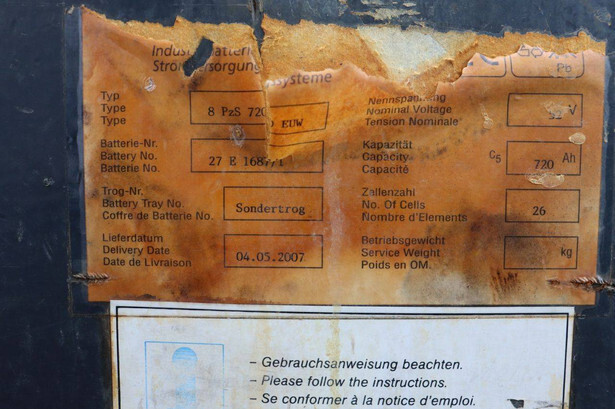 Typ
Type
Type
8 PzS 720
EUW
Batterie-Nr.
Battery No.
Batterie No.
27 E 1687/1
Trog-Nr.
Battery Tray No.
Coffre de Batterie No.
Sondertrog
Lieferdatum
Delivery Date
Date de Livraison
04.05.2007
Pb
Nennspannung
Nominal Voltage
Tension Nominale
V
Kapazität
Capacity
Capacité
C5
720 Ah
Zellenzahl
No. Of Cells
Nombre d'Elements
26
Betriebsgewicht
Service Weight
Poids en OM.
kg
– Gebrauchsanweisung beachten.
– Please follow the instructions.
– Se conformer à la notice d'emploi.